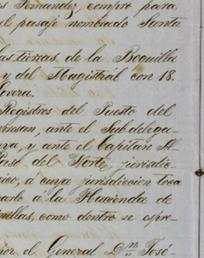 Fernandez, compró para
el parage nombrado Santa
las tierras, de la Boquilla
y del Magistral con 18.
Registros del Puesto del
ante el Subdelega-
va, y ante el Capitan M.
Paso del Norte, jurisdic-
cion, a cuya jurisdiccion toca
á la Hacienda de
como dentro se espre-
el General Dn. José